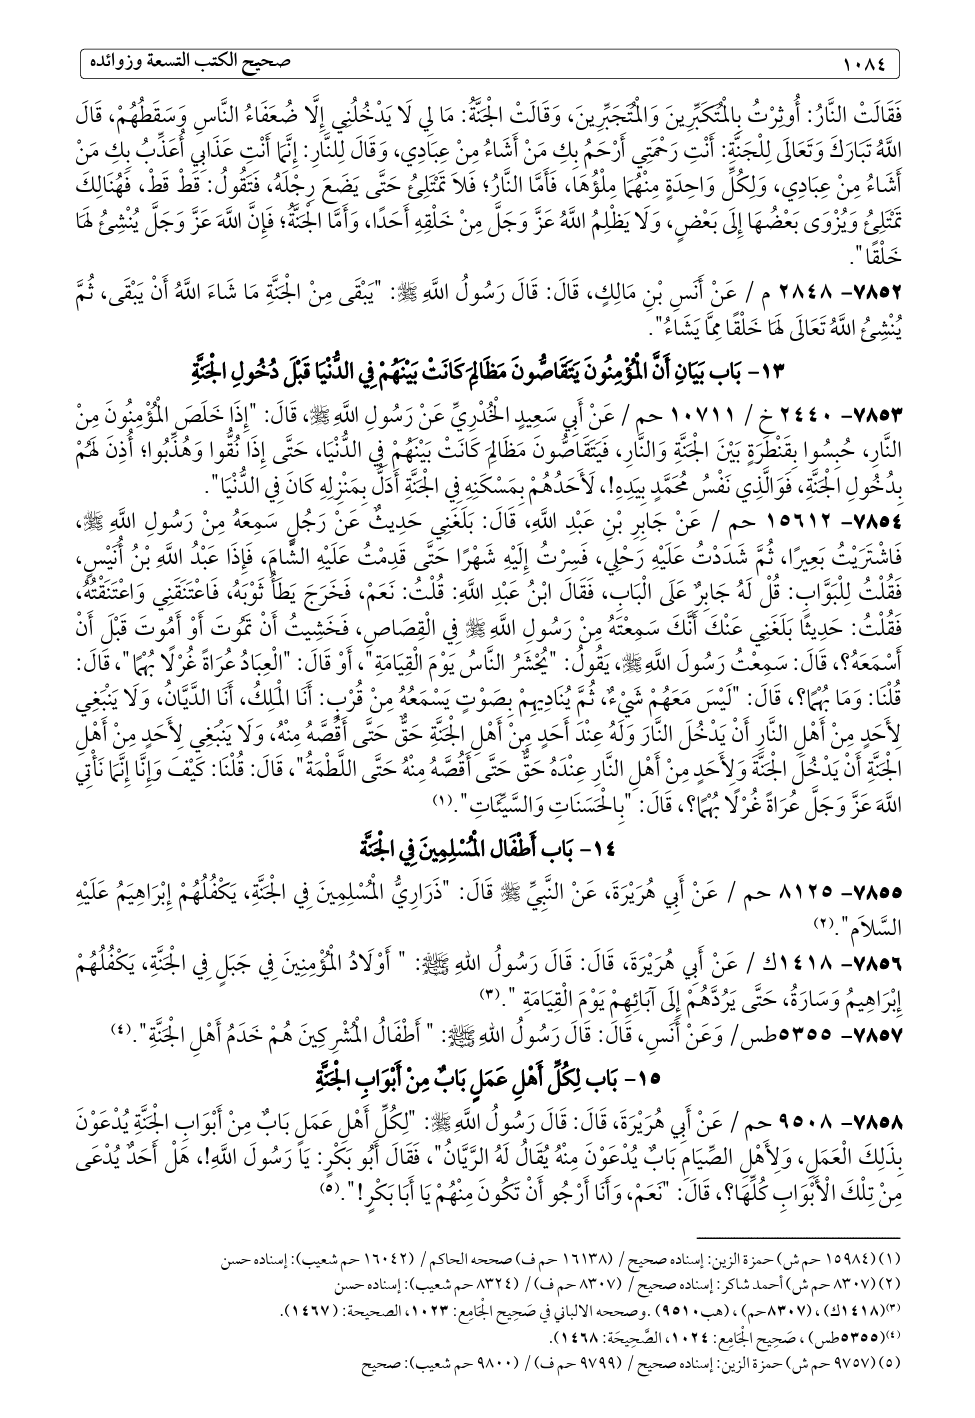 ١٠٨٤ صحيح الكتب التسعة وزوائده
فَقَالَتْ النَّارُ: أُوثِرْتُ بِالْمُتَكَبِّرِينَ وَالْمُتَجَبِّرِينَ، وَقَالَتْ الْجَنَّةُ: مَا لِي لَا يَدْخُلُنِي إِلَّا ضُعَفَاءُ النَّاسِ وَسَقَطُهُمْ، قَالَ
اللَّهُ تَبَارَكَ وَتَعَالَى لِلْجَنَّةِ: أَنْتِ رَحْمَتِي أَرْحَمُ بِكِ مَنْ أَشَاءُ مِنْ عِبَادِي، وَقَالَ لِلنَّارِ: إِنَّمَا أَنْتِ عَذَابِي أُعَذِّبُ بِكِ مَنْ
أَشَاءُ مِنْ عِبَادِي، وَلِكُلِّ وَاحِدَةٍ مِنْهُمَا مِلْؤُهَا، فَأَمَّا النَّارُ؛ فَلاَ تَمْتَلِئُ حَتَّى يَضَعَ رِجْلَهُ، فَتَقُولُ: قَطْ قَطْ، فَهُنَالِكَ
تَمْتَلِئُ وَيُزْوَى بَعْضُهَا إِلَى بَعْضٍ، وَلَا يَظْلِمُ اللَّهُ عَزَّ وَجَلَّ مِنْ خَلْقِهِ أَحَدًا، وَأَمَّا الْجَنَّةُ؛ فَإِنَّ اللَّهَ عَزَّ وَجَلَّ يُنْشِئُ لَهَا
خَلْقًا".
٧٨٥٢- ٢٨٤٨ م / عَنْ أَنَسِ بْنِ مَالِكٍ، قَالَ: قَالَ رَسُولُ اللَّهِ ﷺ: "يَبْقَى مِنْ الْجَنَّةِ مَا شَاءَ اللَّهُ أَنْ يَبْقَى، ثُمَّ
يُنْشِئُ اللَّهُ تَعَالَى لَهَا خَلْقًا مِمَّا يَشَاءُ".
١٣- بَاب بَيَانِ أَنَّ الْمُؤْمِنُونَ يَتَقَاصُّونَ مَظَالِمَ كَانَتْ بَيْنَهُمْ فِي الدُّنْيَا قَبْلَ دُخُولِ الْجَنَّةِ
٧٨٥٣- ٢٤٤٠ خ / ١٠٧١١ حم / عَنْ أَبِي سَعِيدٍ الْخُدْرِيِّ عَنْ رَسُولِ اللَّهِ ﷺ، قَالَ: "إِذَا خَلَصَ الْمُؤْمِنُونَ مِنْ
النَّارِ، حُبِسُوا بِقَنْطَرَةٍ بَيْنَ الْجَنَّةِ وَالنَّارِ، فَيَتَقَاصُّونَ مَظَالِمَ كَانَتْ بَيْنَهُمْ فِي الدُّنْيَا، حَتَّى إِذَا نُقُّوا وَهُذِّبُوا؛ أُذِنَ لَهُمْ
بِدُخُولِ الْجَنَّةِ، فَوَالَّذِي نَفْسُ مُحَمَّدٍ بِيَدِهِ!، لَأَحَدُهُمْ بِمَسْكَنِهِ فِي الْجَنَّةِ أَدَلُّ بِمَنْزِلِهِ كَانَ فِي الدُّنْيَا".
٧٨٥٤- ١٥٦١٢ حم / عَنْ جَابِرِ بْنِ عَبْدِ اللَّهِ، قَالَ: بَلَغَنِي حَدِيثٌ عَنْ رَجُلٍ سَمِعَهُ مِنْ رَسُولِ اللَّهِ ﷺ،
فَاشْتَرَيْتُ بَعِيرًا، ثُمَّ شَدَدْتُ عَلَيْهِ رَحْلِي، فَسِرْتُ إِلَيْهِ شَهْرًا حَتَّى قَدِمْتُ عَلَيْهِ الشَّامَ، فَإِذَا عَبْدُ اللَّهِ بْنُ أُنَيْسٍ،
فَقُلْتُ لِلْبَوَّابِ: قُلْ لَهُ جَابِرٌ عَلَى الْبَابِ، فَقَالَ ابْنُ عَبْدِ اللَّهِ: قُلْتُ: نَعَمْ، فَخَرَجَ يَطَأُ ثَوْبَهُ، فَاعْتَنَقَنِي وَاعْتَنَقْتُهُ،
فَقُلْتُ: حَدِيثًا بَلَغَنِي عَنْكَ أَنَّكَ سَمِعْتَهُ مِنْ رَسُولِ اللَّهِ ﷺ فِي الْقِصَاصِ، فَخَشِيتُ أَنْ تَمُوتَ أَوْ أَمُوتَ قَبْلَ أَنْ
أَسْمَعَهُ؟، قَالَ: سَمِعْتُ رَسُولَ اللَّهِ ﷺ، يَقُولُ: "يُحْشَرُ النَّاسُ يَوْمَ الْقِيَامَةِ"، أَوْ قَالَ: "الْعِبَادُ عُرَاةً غُرْلًا بُهْمًا"، قَالَ:
قُلْنَا: وَمَا بُهْمًا؟، قَالَ: "لَيْسَ مَعَهُمْ شَيْءٌ، ثُمَّ يُنَادِيهِمْ بِصَوْتٍ يَسْمَعُهُ مِنْ قُرْبٍ: أَنَا الْمَلِكُ، أَنَا الدَّيَّانُ، وَلَا يَنْبَغِي
لِأَحَدٍ مِنْ أَهْلِ النَّارِ أَنْ يَدْخُلَ النَّارَ وَلَهُ عِنْدَ أَحَدٍ مِنْ أَهْلِ الْجَنَّةِ حَقٌّ حَتَّى أَقُصَّهُ مِنْهُ، وَلَا يَنْبَغِي لِأَحَدٍ مِنْ أَهْلِ
الْجَنَّةِ أَنْ يَدْخُلَ الْجَنَّةَ وَلِأَحَدٍ مِنْ أَهْلِ النَّارِ عِنْدَهُ حَقٌّ حَتَّى أَقُصَّهُ مِنْهُ حَتَّى اللَّطْمَةُ"، قَالَ: قُلْنَا: كَيْفَ وَإِنَّا إِنَّمَا نَأْتِي
اللَّهَ عَزَّ وَجَلَّ عُرَاةً غُرْلًا بُهْمًا؟، قَالَ: "بِالْحَسَنَاتِ وَالسَّيِّئَاتِ".(١)
١٤- بَاب أَطْفَال الْمُسْلِمِينَ فِي الْجَنَّة
٧٨٥٥- ٨١٢٥ حم / عَنْ أَبِي هُرَيْرَةَ، عَنْ النَّبِيِّ ﷺ قَالَ: "ذَرَارِيُّ الْمُسْلِمِينَ فِي الْجَنَّةِ، يَكْفُلُهُمْ إِبْرَاهِيمُ عَلَيْهِ
السَّلاَم".(٢)
٧٨٥٦- ١٤١٨ك / عَنْ أَبِي هُرَيْرَةَ، قَالَ: قَالَ رَسُولُ اللهِ ﷺ: " أَوْلَادُ الْمُؤْمِنِينَ فِي جَبَلٍ فِي الْجَنَّةِ، يَكْفُلُهُمْ
إِبْرَاهِيمُ وَسَارَةُ، حَتَّى يَرُدَّهُمْ إِلَى آبَائِهِمْ يَوْمَ الْقِيَامَةِ ".(٣)
٧٨٥٧- ٥٣٥٥طس/ وَعَنْ أَنَسٍ، قَالَ: قَالَ رَسُولُ اللهِ ﷺ: " أَطْفَالُ الْمُشْرِكِينَ هُمْ خَدَمُ أَهْلِ الْجَنَّةِ".(٤)
١٥- بَاب لِكُلِّ أَهْلِ عَمَلٍ بَابٌ مِنْ أَبْوَابِ الْجَنَّةِ
٧٨٥٨- ٩٥٠٨ حم / عَنْ أَبِي هُرَيْرَةَ، قَالَ: قَالَ رَسُولُ اللَّهِ ﷺ: "لِكُلِّ أَهْلِ عَمَلٍ بَابٌ مِنْ أَبْوَابِ الْجَنَّةِ يُدْعَوْنَ
بِذَلِكَ الْعَمَلِ، وَلِأَهْلِ الصِّيَامِ بَابٌ يُدْعَوْنَ مِنْهُ يُقَالُ لَهُ الرَّيَّانُ"، فَقَالَ أَبُو بَكْرٍ: يَا رَسُولَ اللَّهِ!، هَلْ أَحَدٌ يُدْعَى
مِنْ تِلْكَ الْأَبْوَابِ كُلِّهَا؟، قَالَ: "نَعَمْ، وَأَنَا أَرْجُو أَنْ تَكُونَ مِنْهُمْ يَا أَبَا بَكْرٍ!".(٥)
(١) (١٥٩٨٤ حم ش) حمزة الزين: إسناده صحيح / (١٦١٣٨ حم ف) صححه الحاكم / (١٦٠٤٢ حم شعيب): إسناده حسن
(٢) (٨٣٠٧ حم ش) أحمد شاكر: إسناده صحيح / (٨٣٠٧ حم ف) / (٨٣٢٤ حم شعيب): إسناده حسن
(٣) (١٤١٨ك) ، (٨٣٠٧حم) ، (هب٩٥١٠) .وصححه الالباني في صَحِيح الْجَامِع: ١٠٢٣، الصحيحة: (١٤٦٧).
(٤) (٥٣٥٥طس) ، صَحِيح الْجَامِع: ١٠٢٤، الصَّحِيحَة: ١٤٦٨).
(٥) (٩٧٥٧ حم ش) حمزة الزين: إسناده صحيح / (٩٧٩٩ حم ف) / (٩٨٠٠ حم شعيب): صحيح